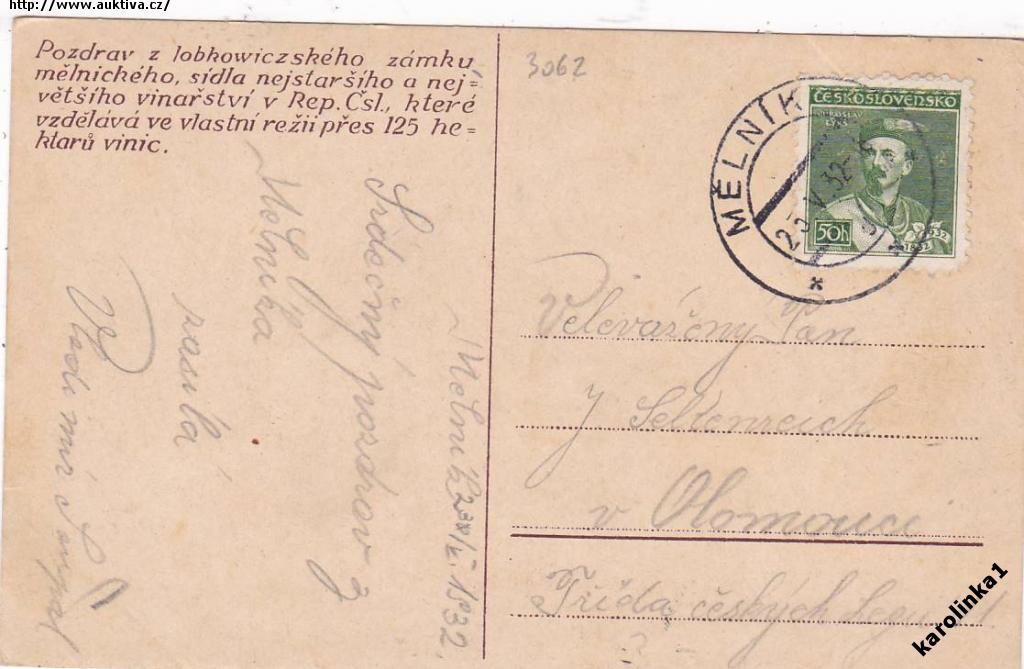 http://www.auktiva.cz/
Pozdrav z lobkowiczského zámku
mělnického, sídla nejstaršího a nej=
většího vinařství v Rep. Čsl., které
vzdělává ve vlastní režii přes 125 he=
ktarů vinic.
3062
MĚLNÍK
23.V.32
ČESKOSLOVENSKO
50h
1832
1932
Mělník 23/V. 1932.
Srdečný pozdrav z
Mělníka
zasílá
Vladimír
Velevážený Pan
J Seltenreich
v Olomouci
Třída českých legií
karolinka1